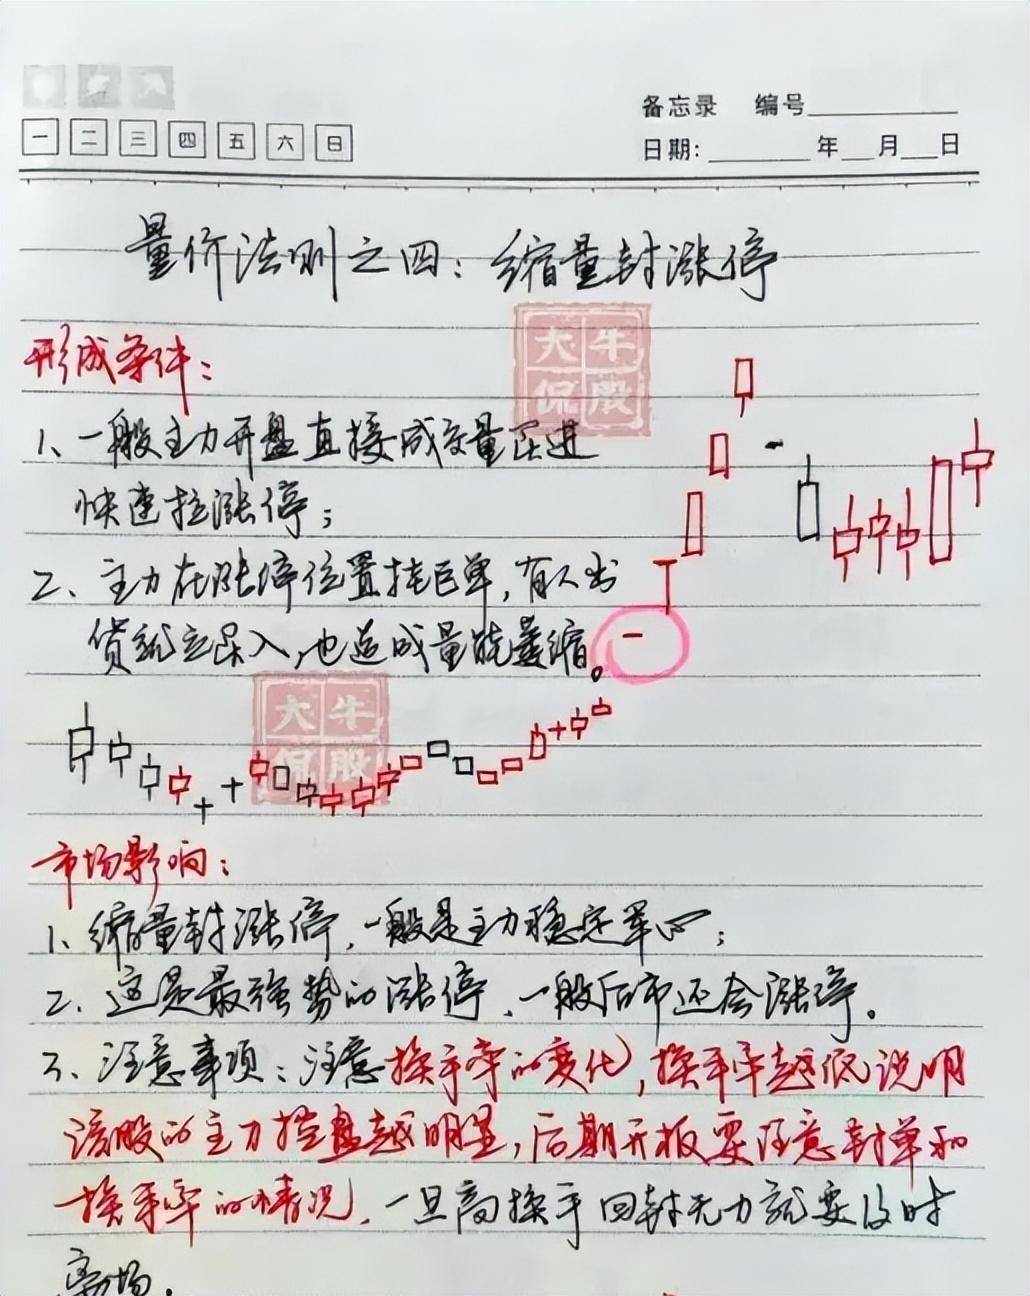 备忘录 编号
一 二 三 四 五 六 日
日期: 年 月 日
量价法则之四：缩量封涨停
大牛
侃股
形成条件：
1、一般主力开盘直接成交量压进
快速拉涨停；
2、主力在涨停位置挂巨单，有人出
货就立马买入，也造成量能萎缩。
大牛
侃股
市场影响：
1、缩量封涨停，一般是主力稳定军心；
2、这是最强势的涨停，一般后市还会涨停。
3、注意事项：注意换手率的变化，换手率越低说明
该股的主力控盘越明显，后期开板要注意封单和
换手率的情况，一旦高换手回封无力就要及时
离场。